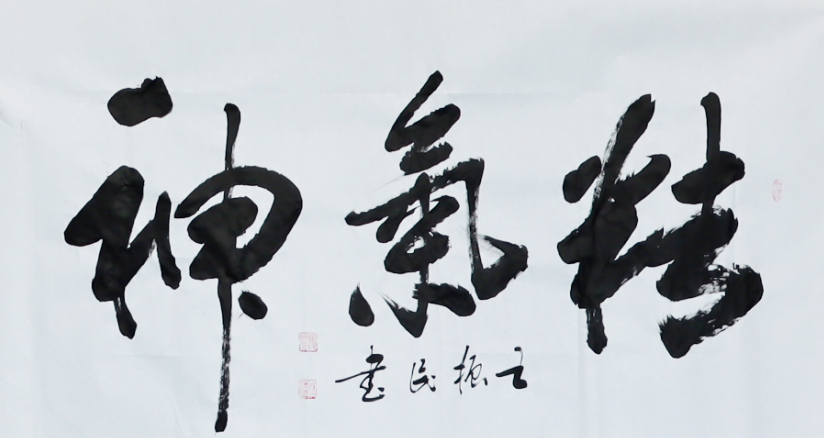 精氣神
振民書